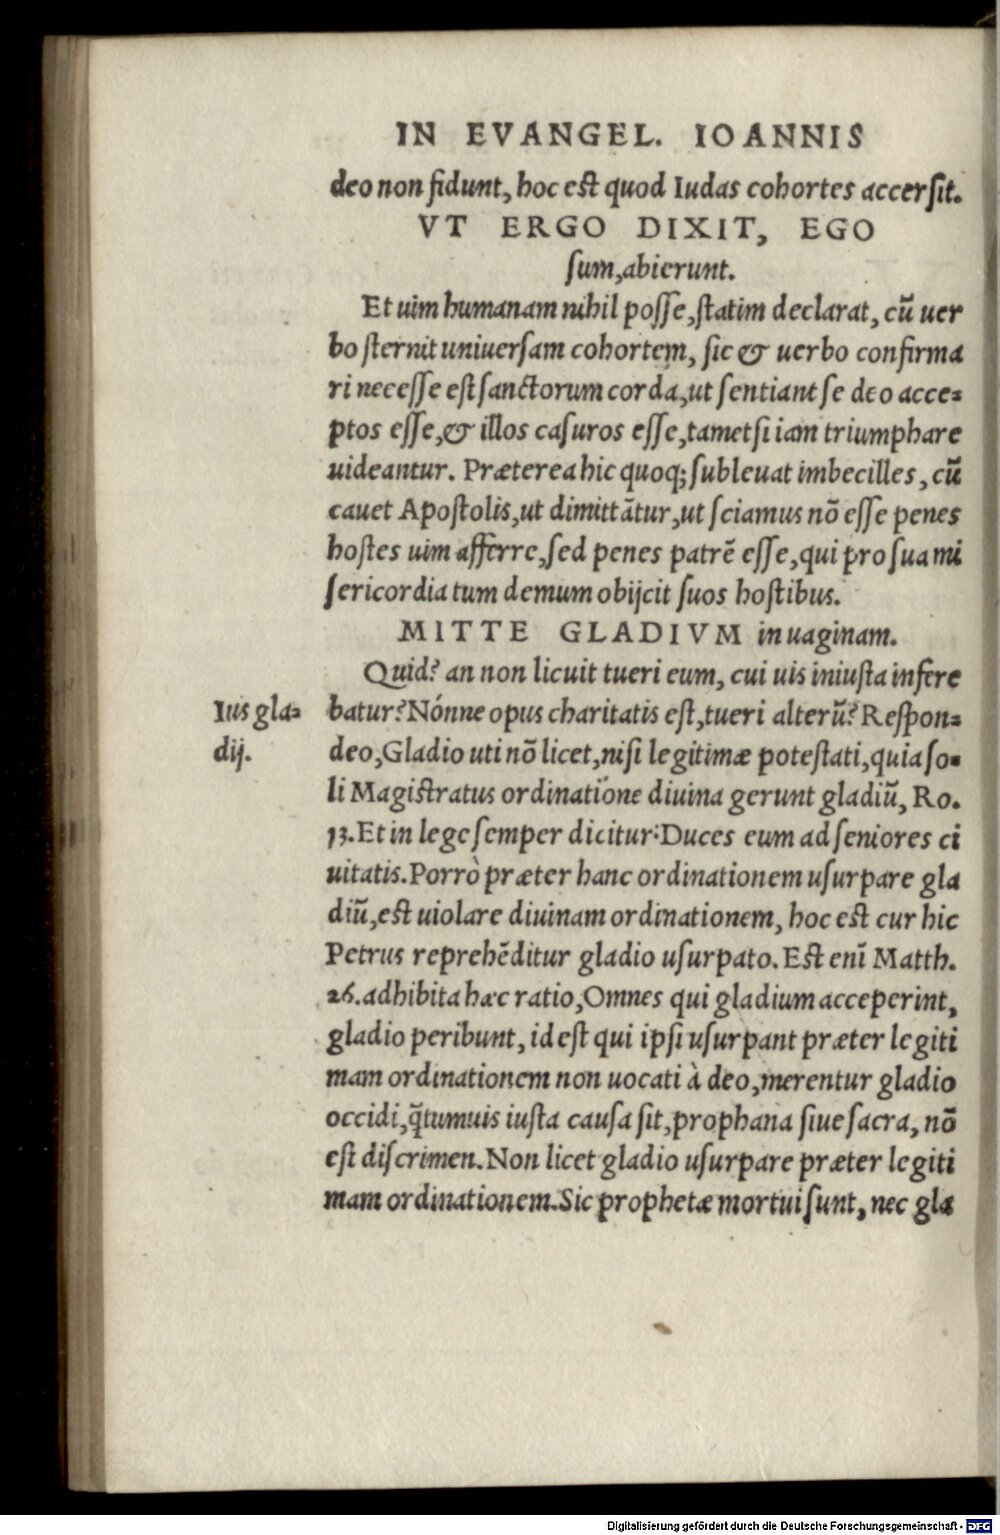 IN EVANGEL. IOANNIS
deo non fidunt, hoc est quod Iudas cohortes accersit.
VT ERGO DIXIT, EGO
sum, abierunt.
Et uim humanam nihil posse, statim declarat, cū uer
bo sternit uniuersam cohortem, sic & uerbo confirma
ri necesse est sanctorum corda, ut sentiant se deo acce=
ptos esse, & illos casuros esse, tametsi iam triumphare
uideantur. Præterea hic quoq; subleuat imbecilles, cū
cauet Apostolis, ut dimittātur, ut sciamus nō esse penes
hostes uim afferre, sed penes patrē esse, qui pro sua mi
sericordia tum demum obijcit suos hostibus.
MITTE GLADIVM in uaginam.
Quid? an non licuit tueri eum, cui uis iniusta infere
Ius gla=
dij.
batur? Nónne opus charitatis est, tueri alterū? Respon=
deo, Gladio uti nō licet, nisi legitimæ potestati, quia so=
li Magistratus ordinatione diuina gerunt gladiū, Ro.
13. Et in lege semper dicitur: Duces eum ad seniores ci
uitatis. Porrò præter hanc ordinationem usurpare gla
diū, est uiolare diuinam ordinationem, hoc est cur hic
Petrus reprehēditur gladio usurpato. Est enī Matth.
26. adhibita hæc ratio, Omnes qui gladium acceperint,
gladio peribunt, id est qui ipsi usurpant præter legiti
mam ordinationem non uocati à deo, merentur gladio
occidi, q̄tumuis iusta causa sit, prophana siue sacra, nō
est discrimen. Non licet gladio usurpare præter legiti
mam ordinationem. Sic prophetæ mortui sunt, nec gla
Digitalisierung gefördert durch die Deutsche Forschungsgemeinschaft - DFG